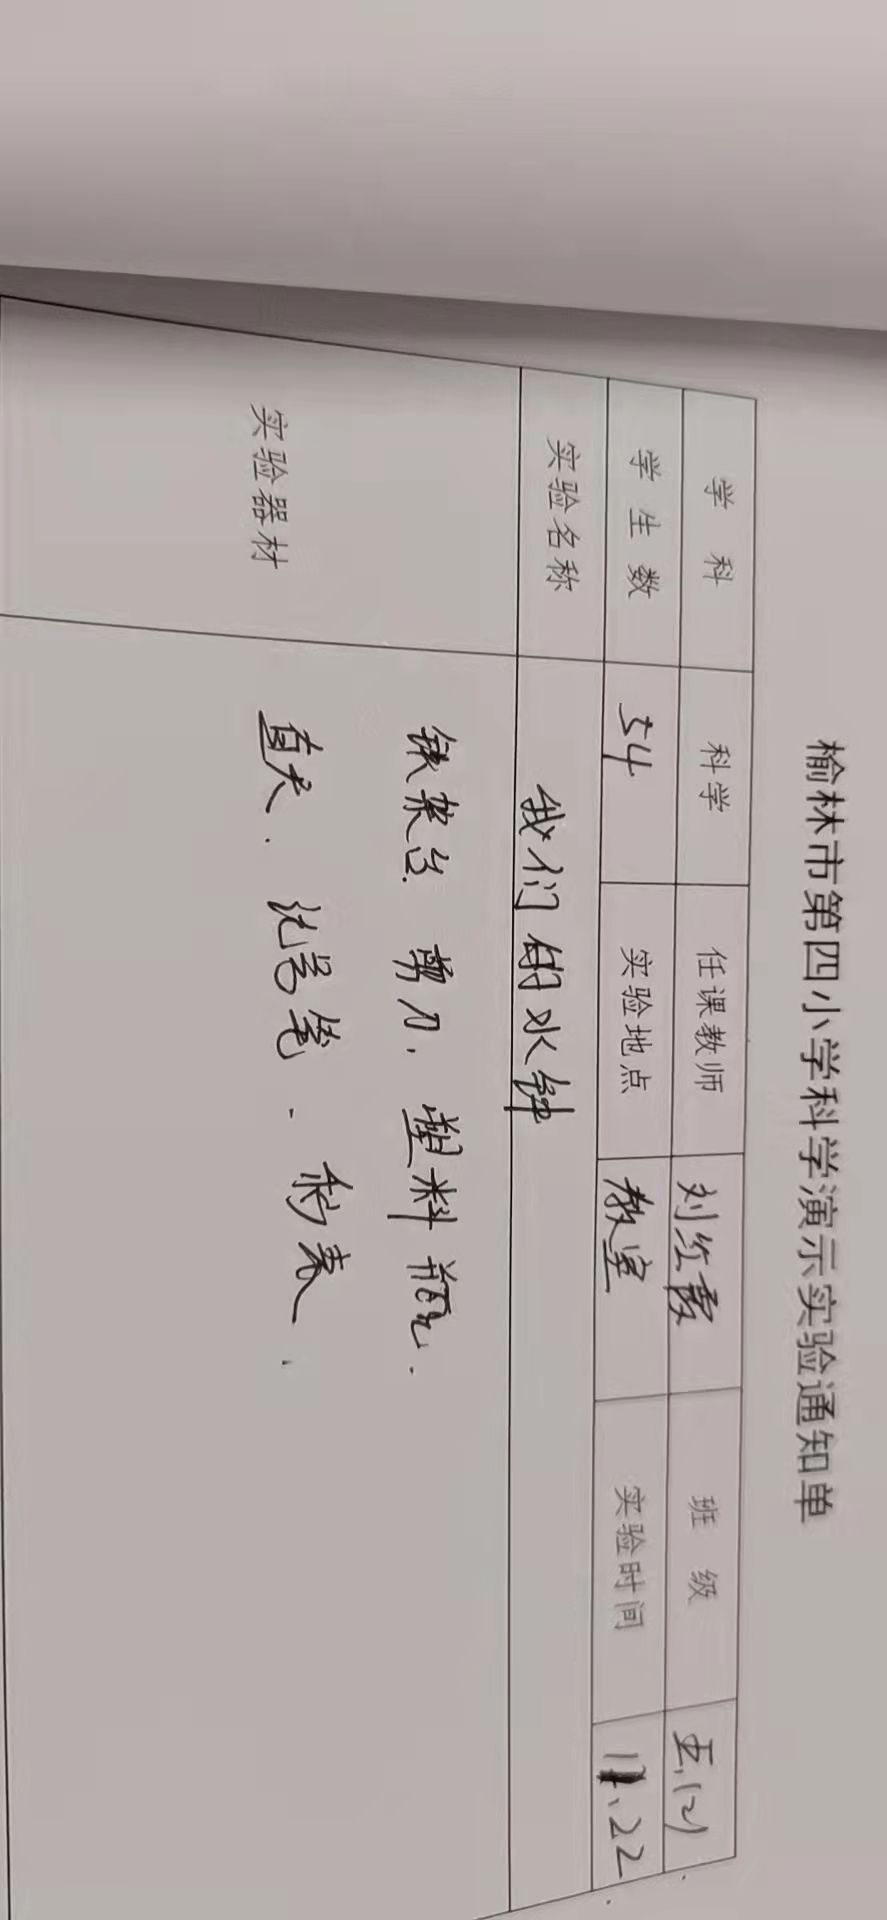 榆林市第四小学科学演示实验通知单
学科 科学 任课教师 刘红霞 班级 五.(2)
学生数 54 实验地点 教室 实验时间 11.22
实验名称 我们的水钟
实验器材 铁架台. 剪刀. 塑料瓶.
直尺. 记号笔. 秒表.